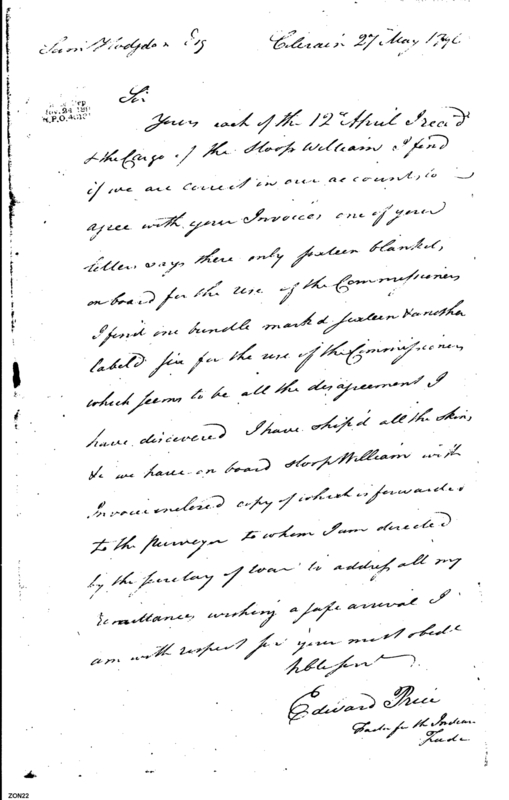 Sam Hodgdon Esq Colerain 27 May 1796
Sir
Yours each of the 12th April I rec'd
& the Cargo of the Sloop William I find
if we are correct in our accounts, to
agree with your Invoices one of your
letters says there only sixteen blankets,
on board for the use of the Commissioners
I find one bundle mark'd sixteen & another
label'd six for the use of the Commissioners
which seems to be all the disagreement I
have discovered I have ship'd all the skins,
&c we have on board Sloop William with
Invoice enclosed copy of which is forwarded
to the Purveyor to whom I am directed
by the Secretary of War to address all my
Remittances wishing a safe arrival I
am with respect Sir your most obedt
Hble Servt
Edward Price
Factor for the Indian
Trade
ZON22